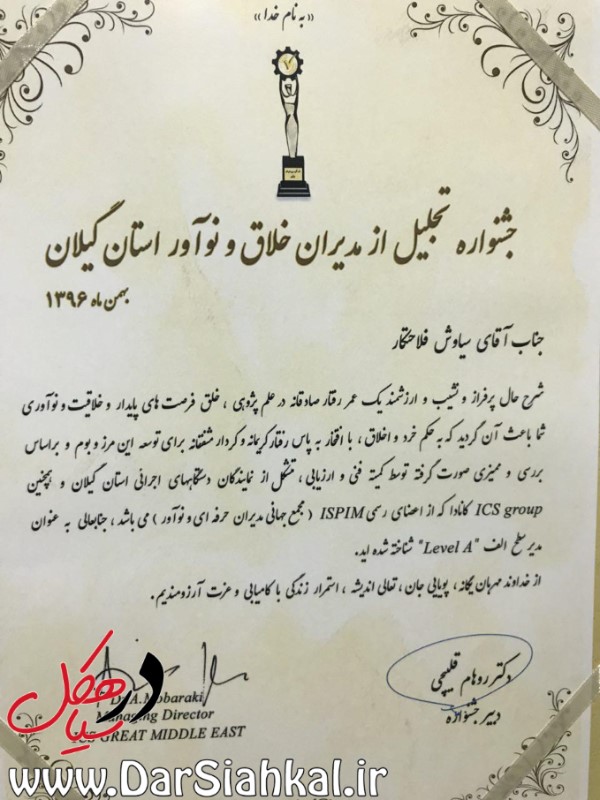 «به نام خدا»
جشنواره تجلیل از مدیران خلاق و نوآور استان گیلان
بهمن ماه ۱۳۹۶
جناب آقای سیاوش فلاحتکار
شرح حال پرفراز و نشیب و ارزشمند یک عمر رفتار صادقانه در علم پژوهی ، خلق فرصت های پایدار و خلاقیت و نوآوری
شما باعث آن گردید که به حکم خرد و اخلاق ، با افتخار به پاس رفتار کریمانه و کردار مشفقانه برای توسعه این مرز و بوم و براساس
بررسی و ممیزی صورت گرفته توسط کمیته فنی و ارزیابی ، متشکل از نمایندگان دستگاههای اجرائی استان گیلان و همچنین
ICS group کانادا که از اعضای رسمی ISPIM ( مجمع جهانی مدیران حرفه ای و نوآور ) می باشد ، جنابعالی به عنوان
مدیر سطح الف "Level A" شناخته شده اید.
از خداوند مهربان یگانه ، پویایی جان ، تعالی اندیشه ، استمرار زندگی با کامیابی و عزت آرزومندیم.
دکتر روهام قلیچی
دبیر جشنواره
Dr.A.Mobaraki
Managing Director
ICS GREAT MIDDLE EAST
در سیاهکل
www.DarSiahkal.ir